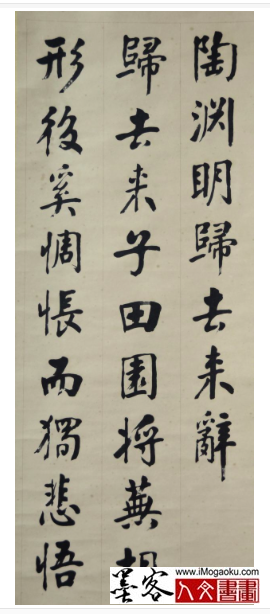 陶渊明歸去来辭
歸去来兮田園將蕪
形役奚惆悵而獨悲悟
www.iMogaoku.com
墨客
人文書畫